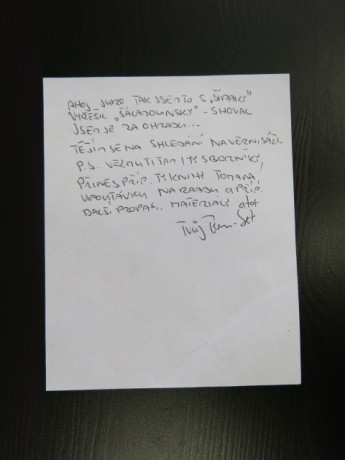 AHOJ JURO TAK JSEM TO S „ŠIPKAMI"
VYŘEŠIL „ŠALAMOUNSKY" - SHOVAL
JSEM JE ZA OHRADU...
TĚŠÍM SE NA SHLEDÁNÍ NA VERNISÁŽI.
P.S. VEZMU TI TAM I TY SBORNÍKY,
PŘINES PŘÍP. TY KNIHY TOMANA,
UPOUTÁVKU NA ZAHRADU A PŘÍP.
DALŠÍ PROPAG. MATERIÁLY atd.
Tvůj